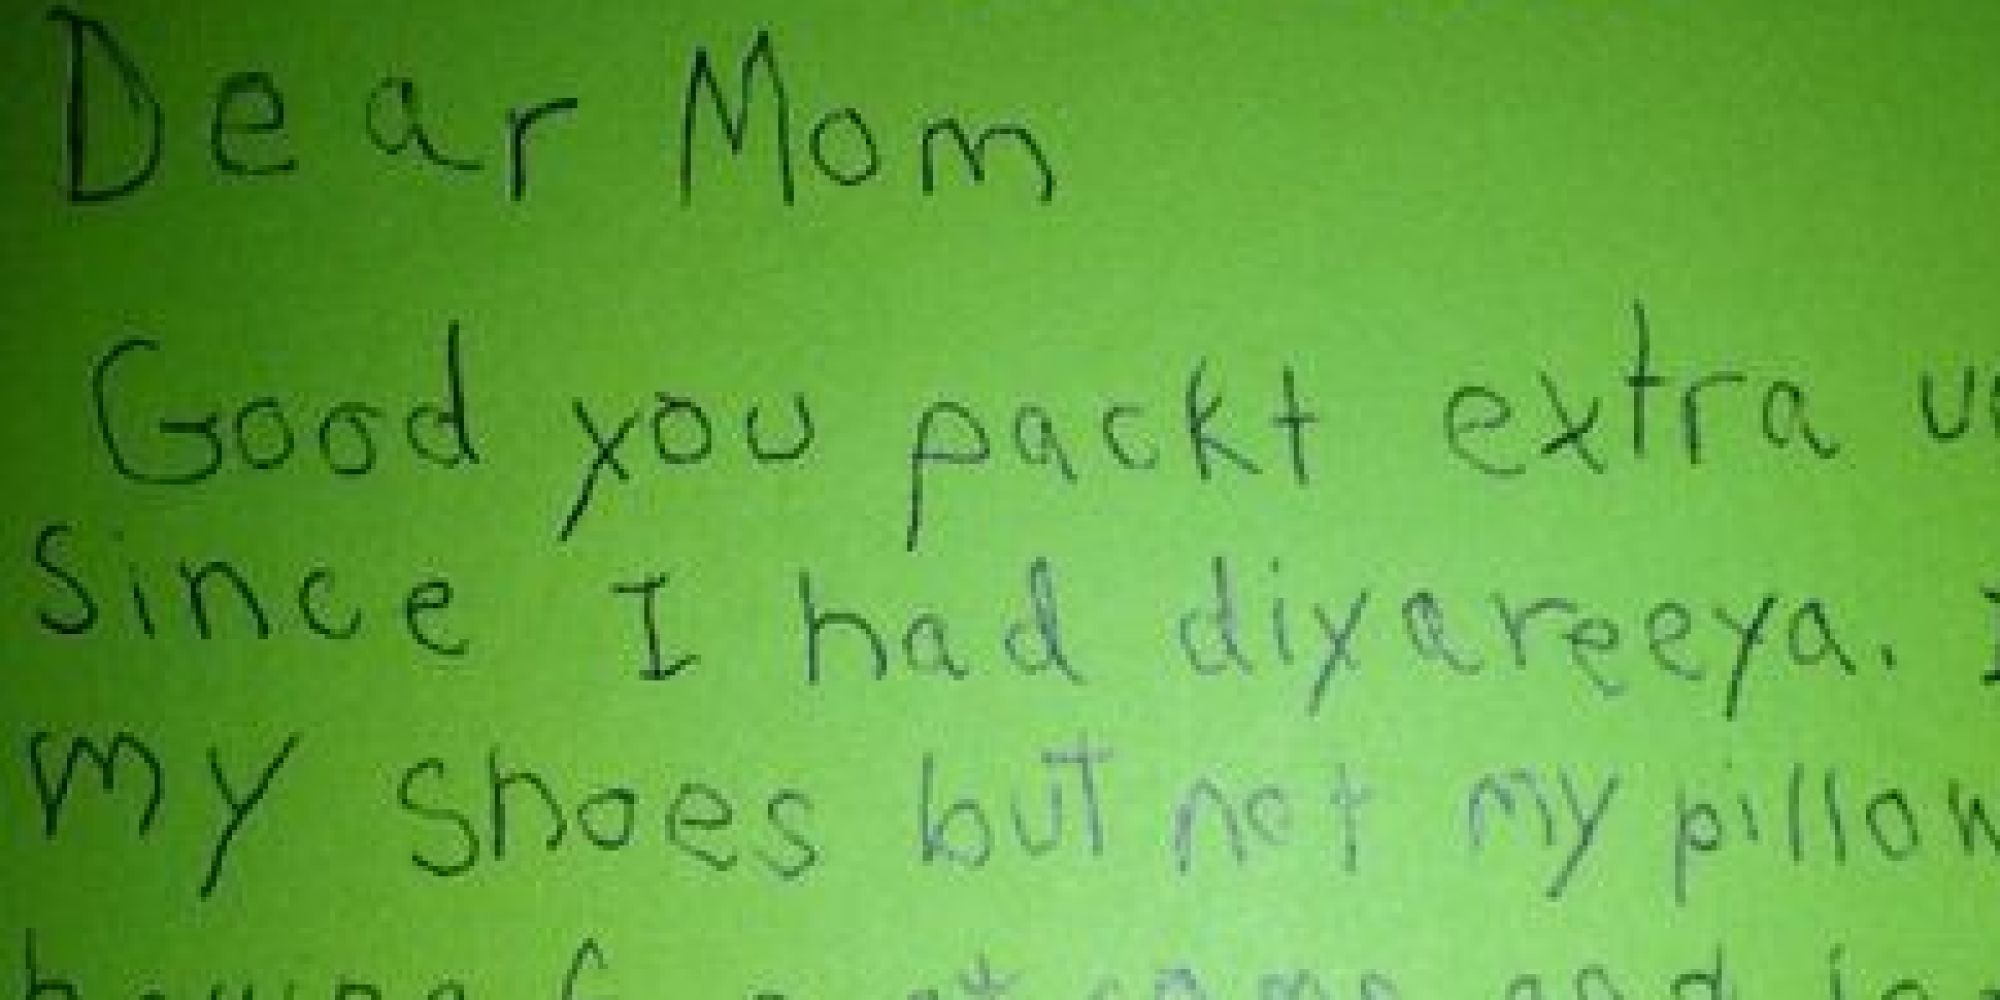 Dear Mom
Good you packt extra
Since I had diyareeya. I
my shoes but not my pillow